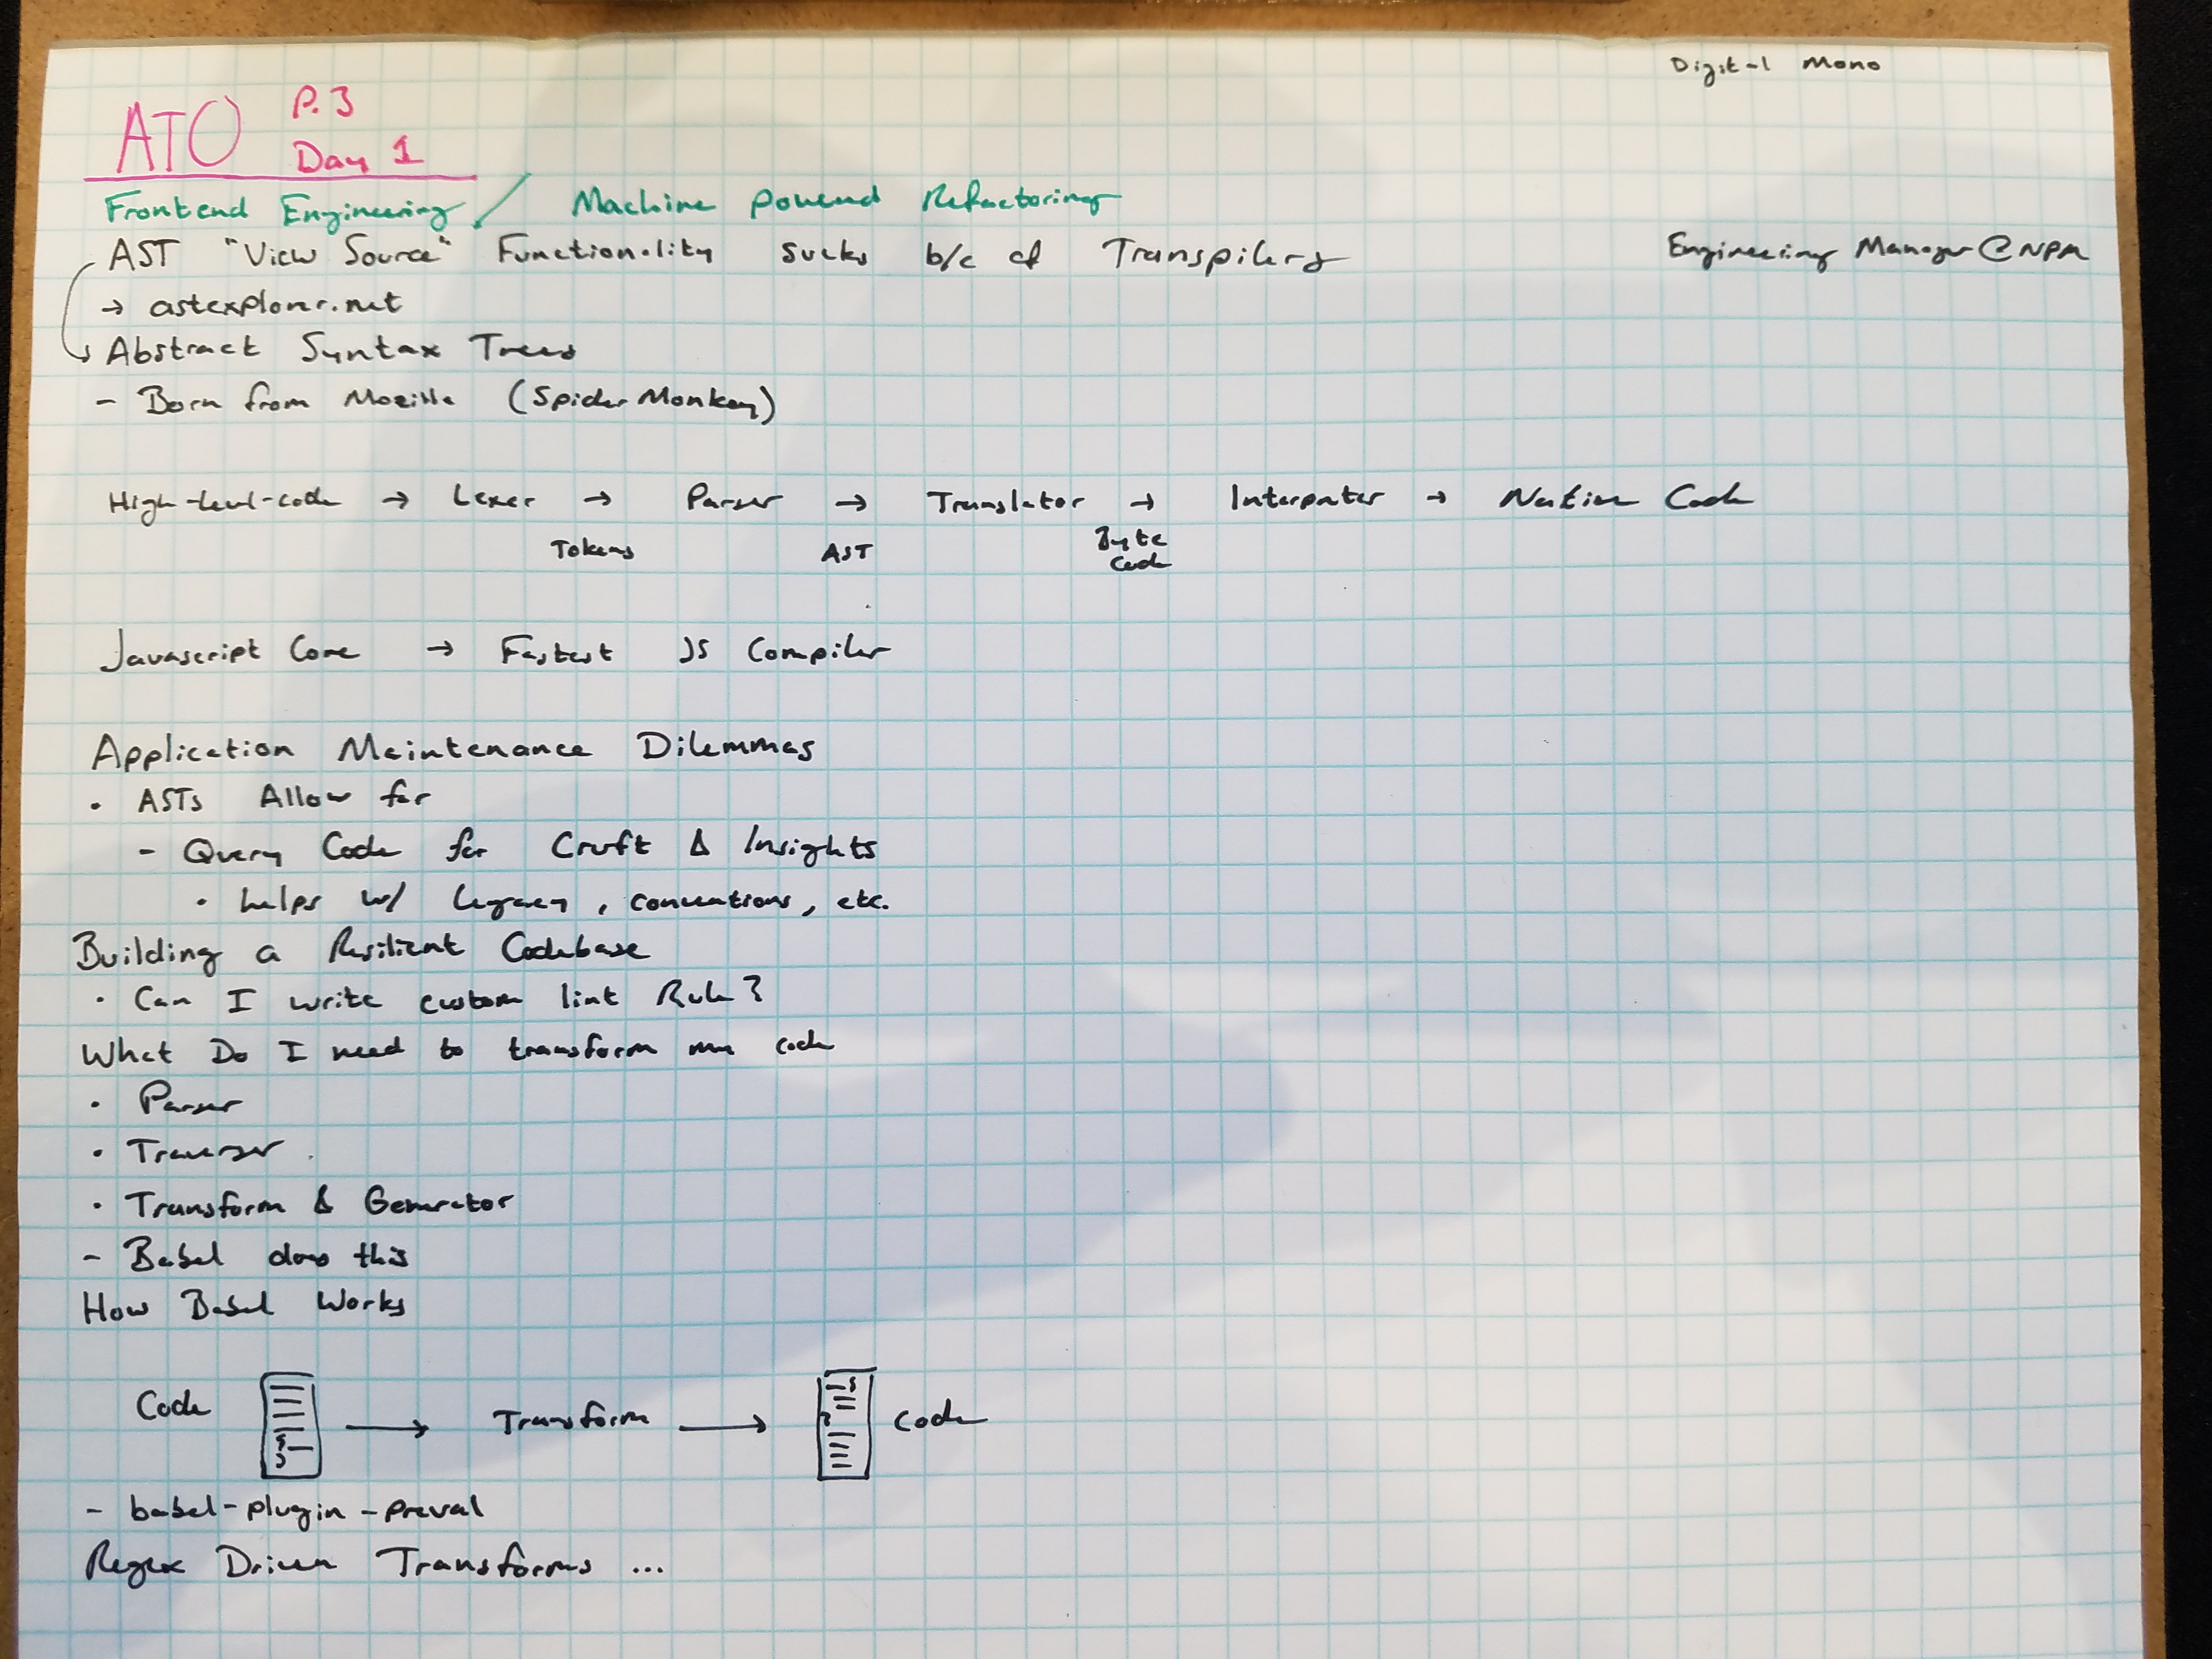 P.3
Digital Mono
ATO Day 1
Frontend Engineering / Machine Powered Refactoring
AST "View Source" Functionality sucks b/c of Transpilers
Engineering Manager @ NPM
→ astexplorer.net
↳ Abstract Syntax Trees
- Born from Mozilla (Spider Monkey)
High-level-code → Lexer → Parser → Translator → Interpreter → Native Code
Tokens AST Byte Code
Javascript Core → Fastest JS Compiler
Application Maintenance Dilemmas
• ASTs Allow for
- Query Code for Cruft & Insights
• helps w/ legacy, conventions, etc.
Building a Resilient Codebase
• Can I write custom lint Rule?
What Do I need to transform my code
• Parser
• Traverser
• Transform & Generator
- Babel does this
How Babel Works
Code → Transform → Code
- babel-plugin-preval
Regex Driven Transforms ...